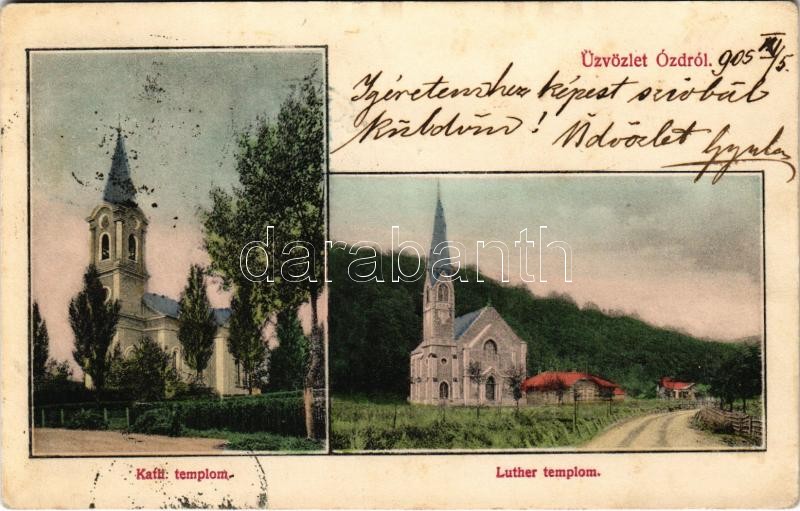 Üzvözlet Ózdról. 905 III/5.
Igéretemhez képest
küldöm! Üdvözlet Gyula
darabanth
Kath: templom.
Luther templom.